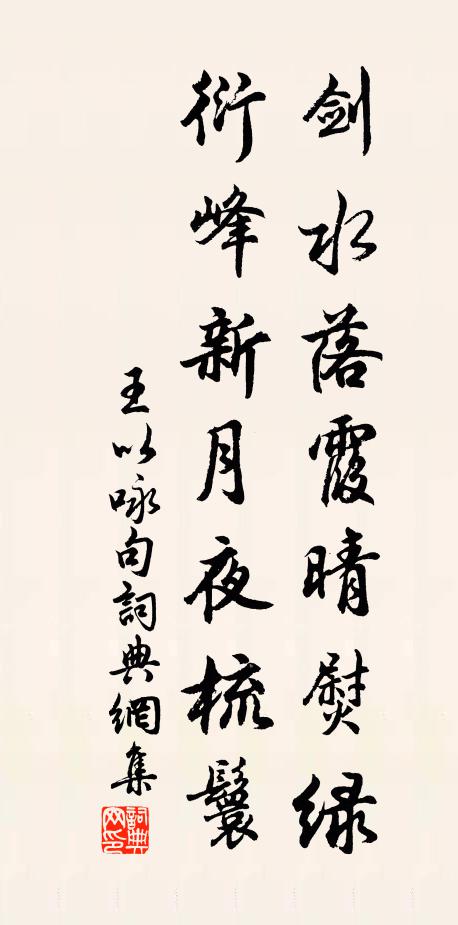 剑水落霞晴熨绿
衍峰新月夜梳鬟
王以咏句詞典網集
詞典网印